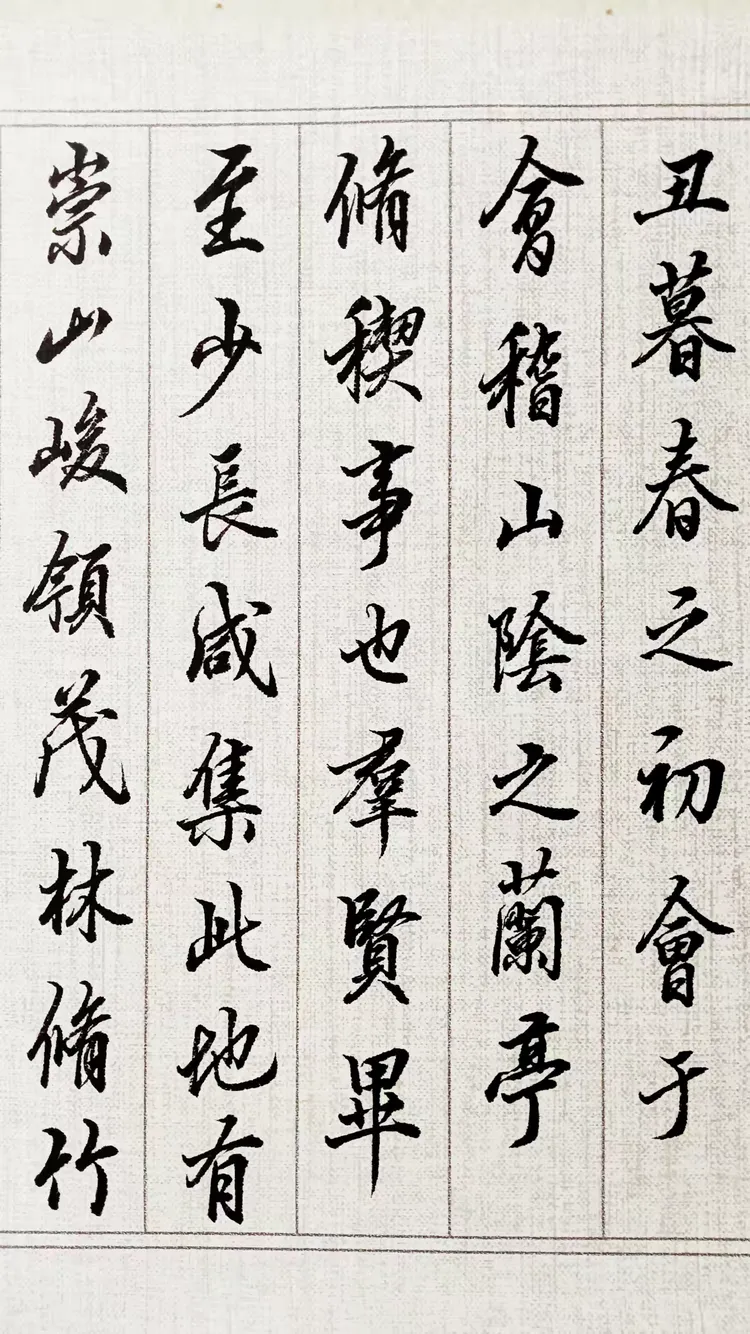 丑暮春之初會于
會稽山陰之蘭亭
脩稧事也羣賢畢
至少長咸集此地有
崇山峻領茂林脩竹